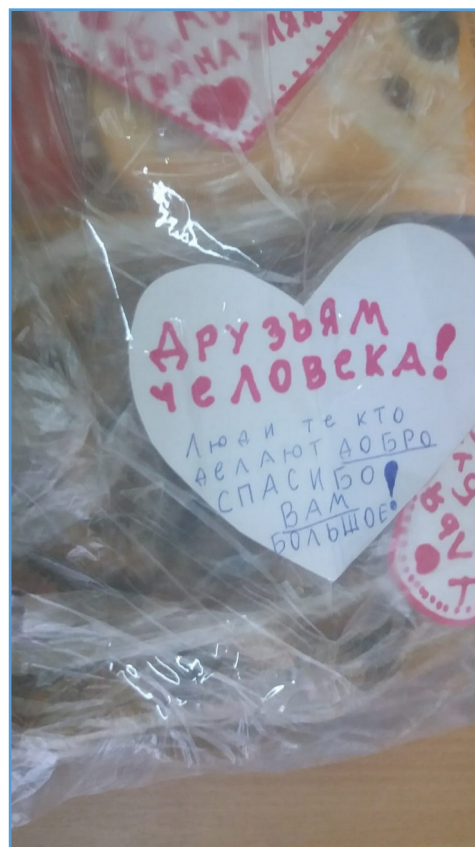 ДРУЗЬЯМ
ЧЕЛОВЕКА!
Люди те кто
делают ДОБРО
СПАСИБО
ВАМ
БОЛЬШОЕ!